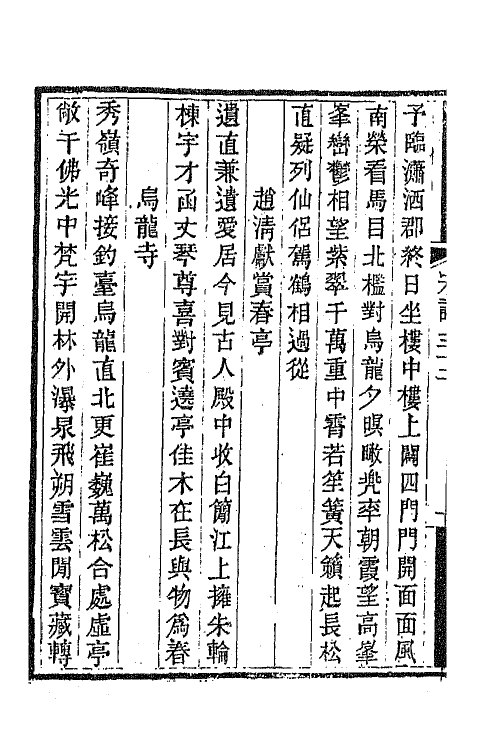 予臨瀟洒郡終日坐樓中樓上闢四門門開面面風
南榮看馬目北檻對烏龍夕暝瞰兠率朝霞望高峯
峯巒鬱相望紫翠千萬重中霄若笙簧天籟起長松
直疑列仙侣駕鶴相過從
趙清獻賞春亭
遺直兼遺愛居今見古人殿中收白簡江上擁朱輪
棟宇才函丈琴尊喜對賓遶亭佳木在長與物爲春
烏龍寺
秀嶺奇峰接釣臺烏龍直北更崔巍萬松合處虛亭
敞千佛光中梵宇開林外瀑泉飛朔雪雲閒寶藏轉